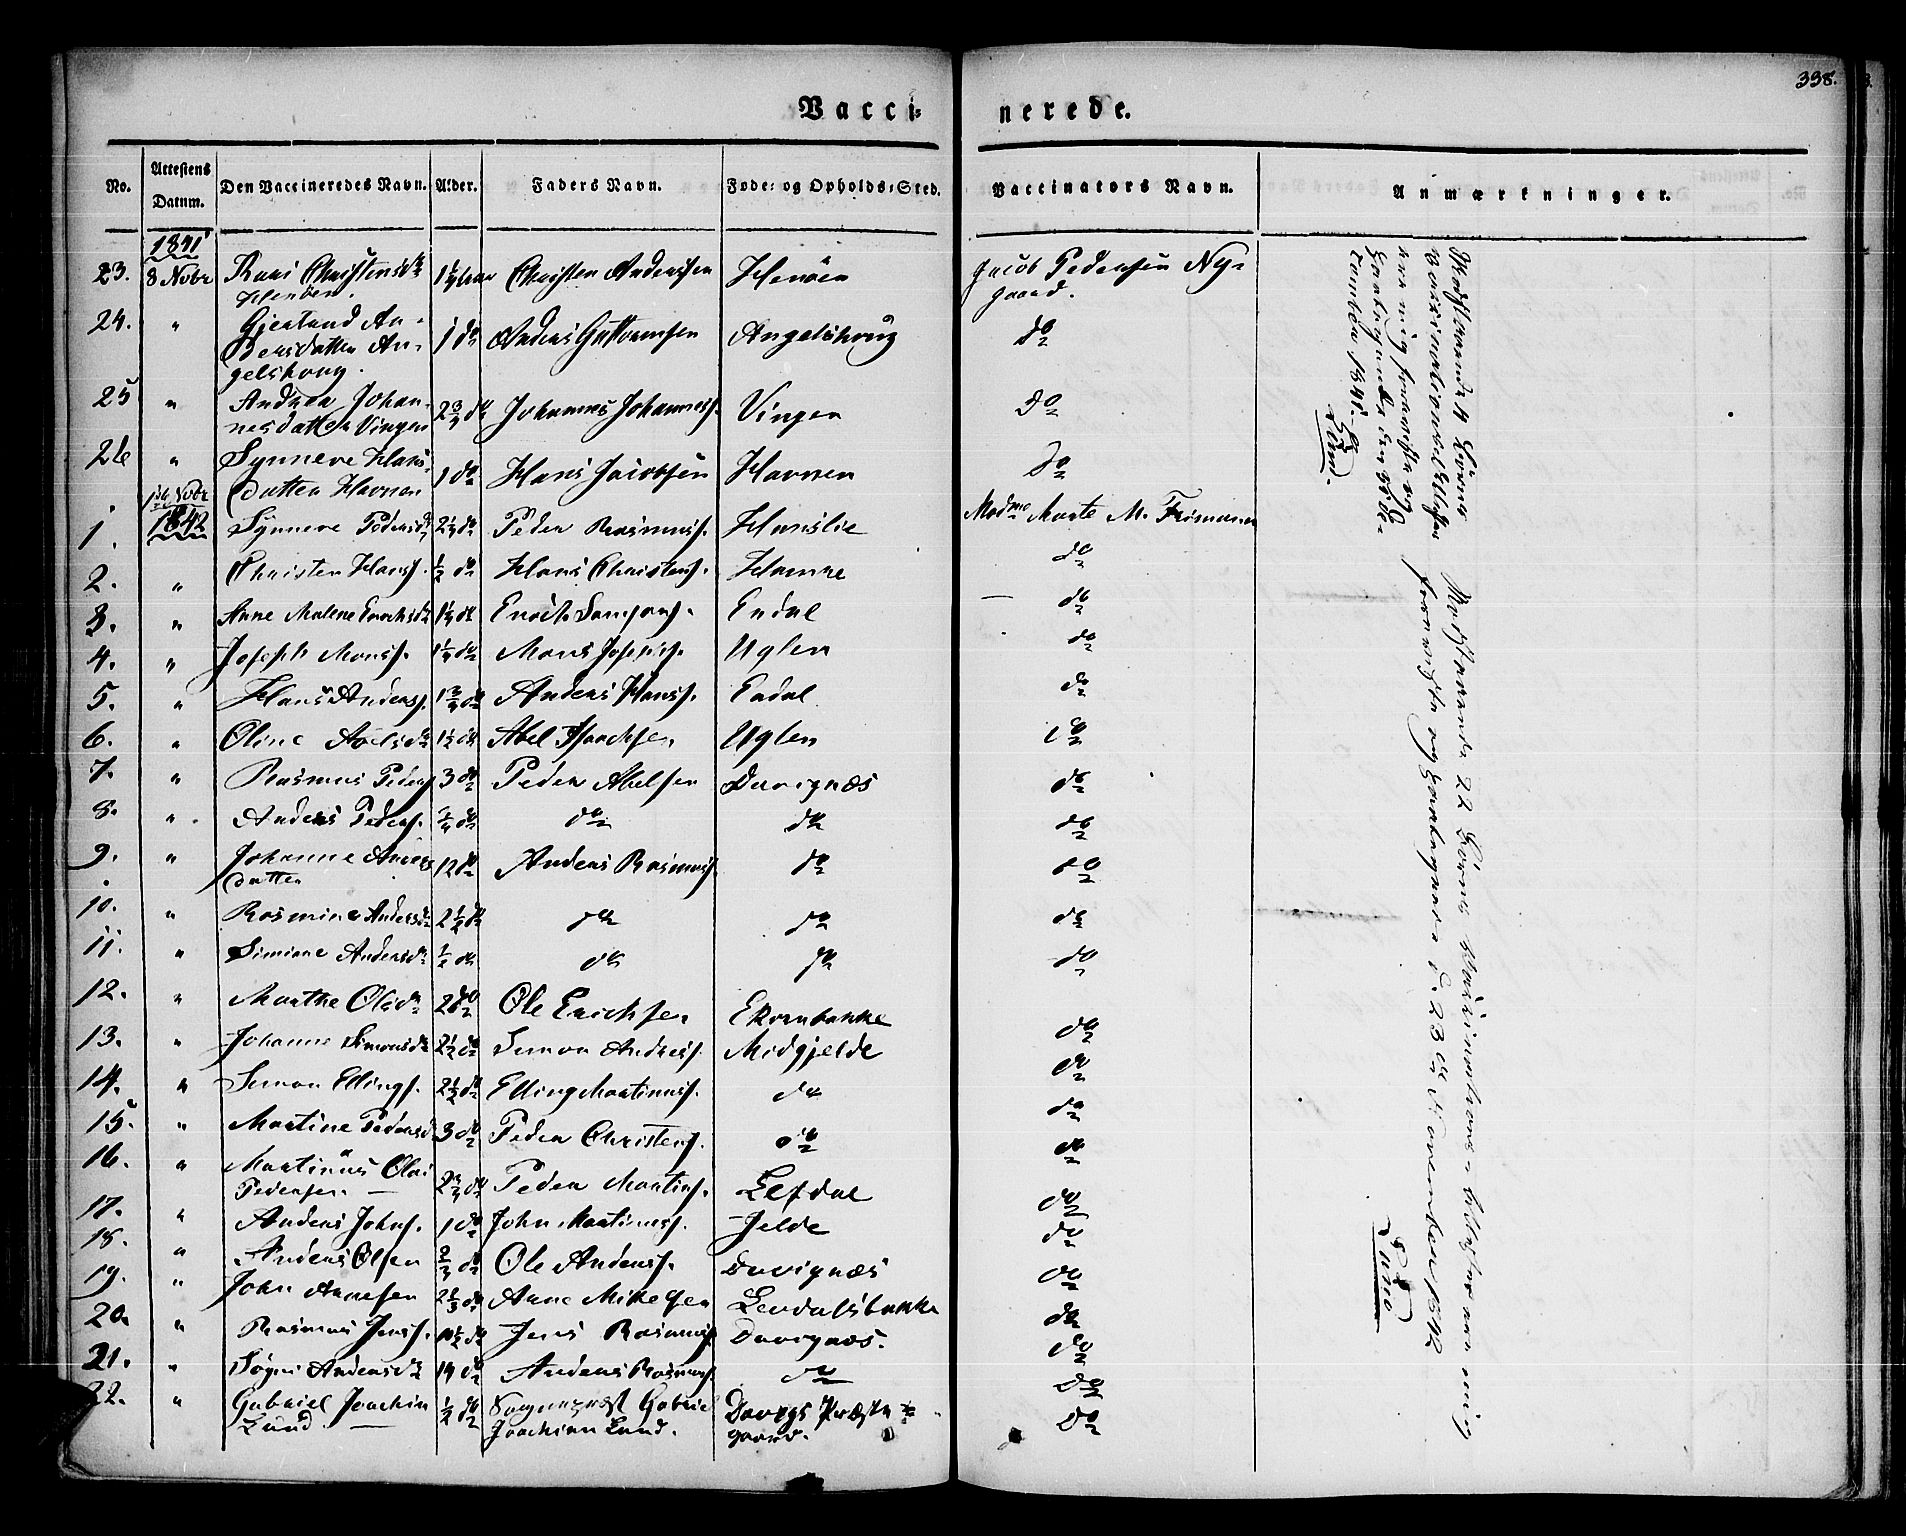 338.
Vacci- nerede.
No. Attestens Datum. Den Vaccineredes Navn. Alder. Faders Navn. Føde- og Opholds-Sted. Vaccinators Navn. Anmærkninger.
1841
23. 8 Nobr Christensdr 1 1/4 aar Christen Anderssen Henøen Jacob Pedersen Ny-
Henøen. gaard.
24. " Gjertrud An-
dersdatter An- 1 do Anders Guttormsen Angelshoug do
gelshoug.
25 " Andrea Johan- 2 3/4 do Johannes Johanness. Vingen do
nesdatter Vingen
26 " Synneve Hans-
datter Havnen 1 do Hans Jacobsen Havnen do
16 Nobr
1842
1. Synneve Pedersdr 2 1/4 do Peder Rasmuss. Hunslie Madme Marte M. Friman
2. " Christen Hanss. 1/2 do Hans Christens. Hamne do
3. " Anne Malene Enochsdr 1 1/4 do Enoch Samsons. Endal do
4. " Joseph Monss. 1 1/4 do Mons Josephs. Uglen do
5. " Hans Anderss. 1 3/4 do Anders Hanss. Endal do
6. " Oline Abelsdr 1 1/2 do Abel Uglen do
7. " Rasmus Peders 3 do Peder Abelsen Davignæs do
8. " Anders Peders. 1/4 do do do do
9. " Johanne Anders
datter 12 do Anders Rasmuss. do do
10. " Rasmine Andersdr 2 1/2 do do do do
11. " Simine Andersdr 1/2 do do do do
12. " Marthe Olsdr 2 do Ole Erichsen Ekornbakke do
13. " Johanne Simonsdr 2 1/2 do Simon Anderss. Midgjelde do
14. " Simon Ellings. 2 1/2 do Elling Martinuss. do do
15. " Martine Pedersd 3 do Peder Christens. do do
16. " Martinus Olai
Pedersen 2 3/4 do Peder Martins. Lefdal do
17. " Anders Johns. 1 do John Martinuss. Jelde do
18. " Anders Olsen 2/3 do Ole Anderss. Davignæs do
19. " John Annesen 2 1/3 do Anne Mikelsen Levdalsbakke do
20. " Rasmus Jenss. 10 1/2 do Jens Rasmuss. Davignæs. do
21. " Andersdr 14 do Anders Rasmuss. do do
22. " Gabriel Joachim 1/2 do Sognepræst Gabriel Davigs Præste- do
Lund Joachim Lund. gaard.
Modstaaende 4 Børns
Vaccinationsattester
ere mig foreviiste og
hos den 30 de-
cember 1841.
Lund.
Modstaaende 22 Børns Vaccinations-attester ere mig
foreviiste og d. 23de November 1842
Lund